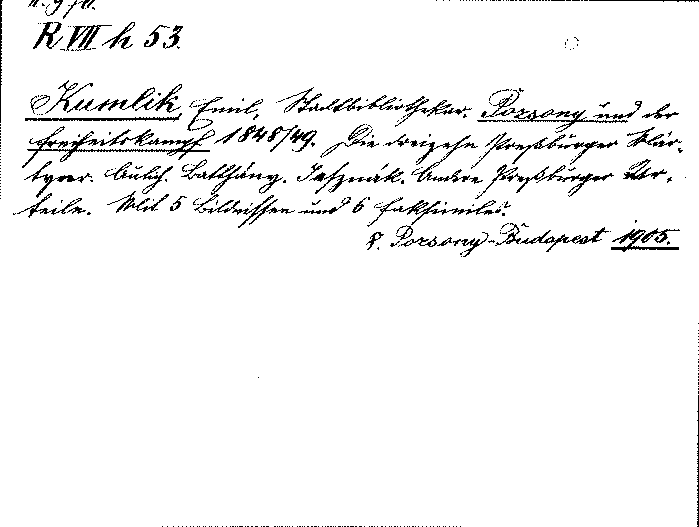 R VII h 53.
Kumlik, Emil, Stadtbibliothekar. Pozsony und der
Freiheitskampf 1848/49. Die dreizehn Preßburger Mär-
tyrer. Ludw. Batthány. Jeszenák. Andere Preßburger Ur-
teile. Mit 5 Bildnissen und 6 Faksimiles.
8. Pozsony-Budapest 1905.